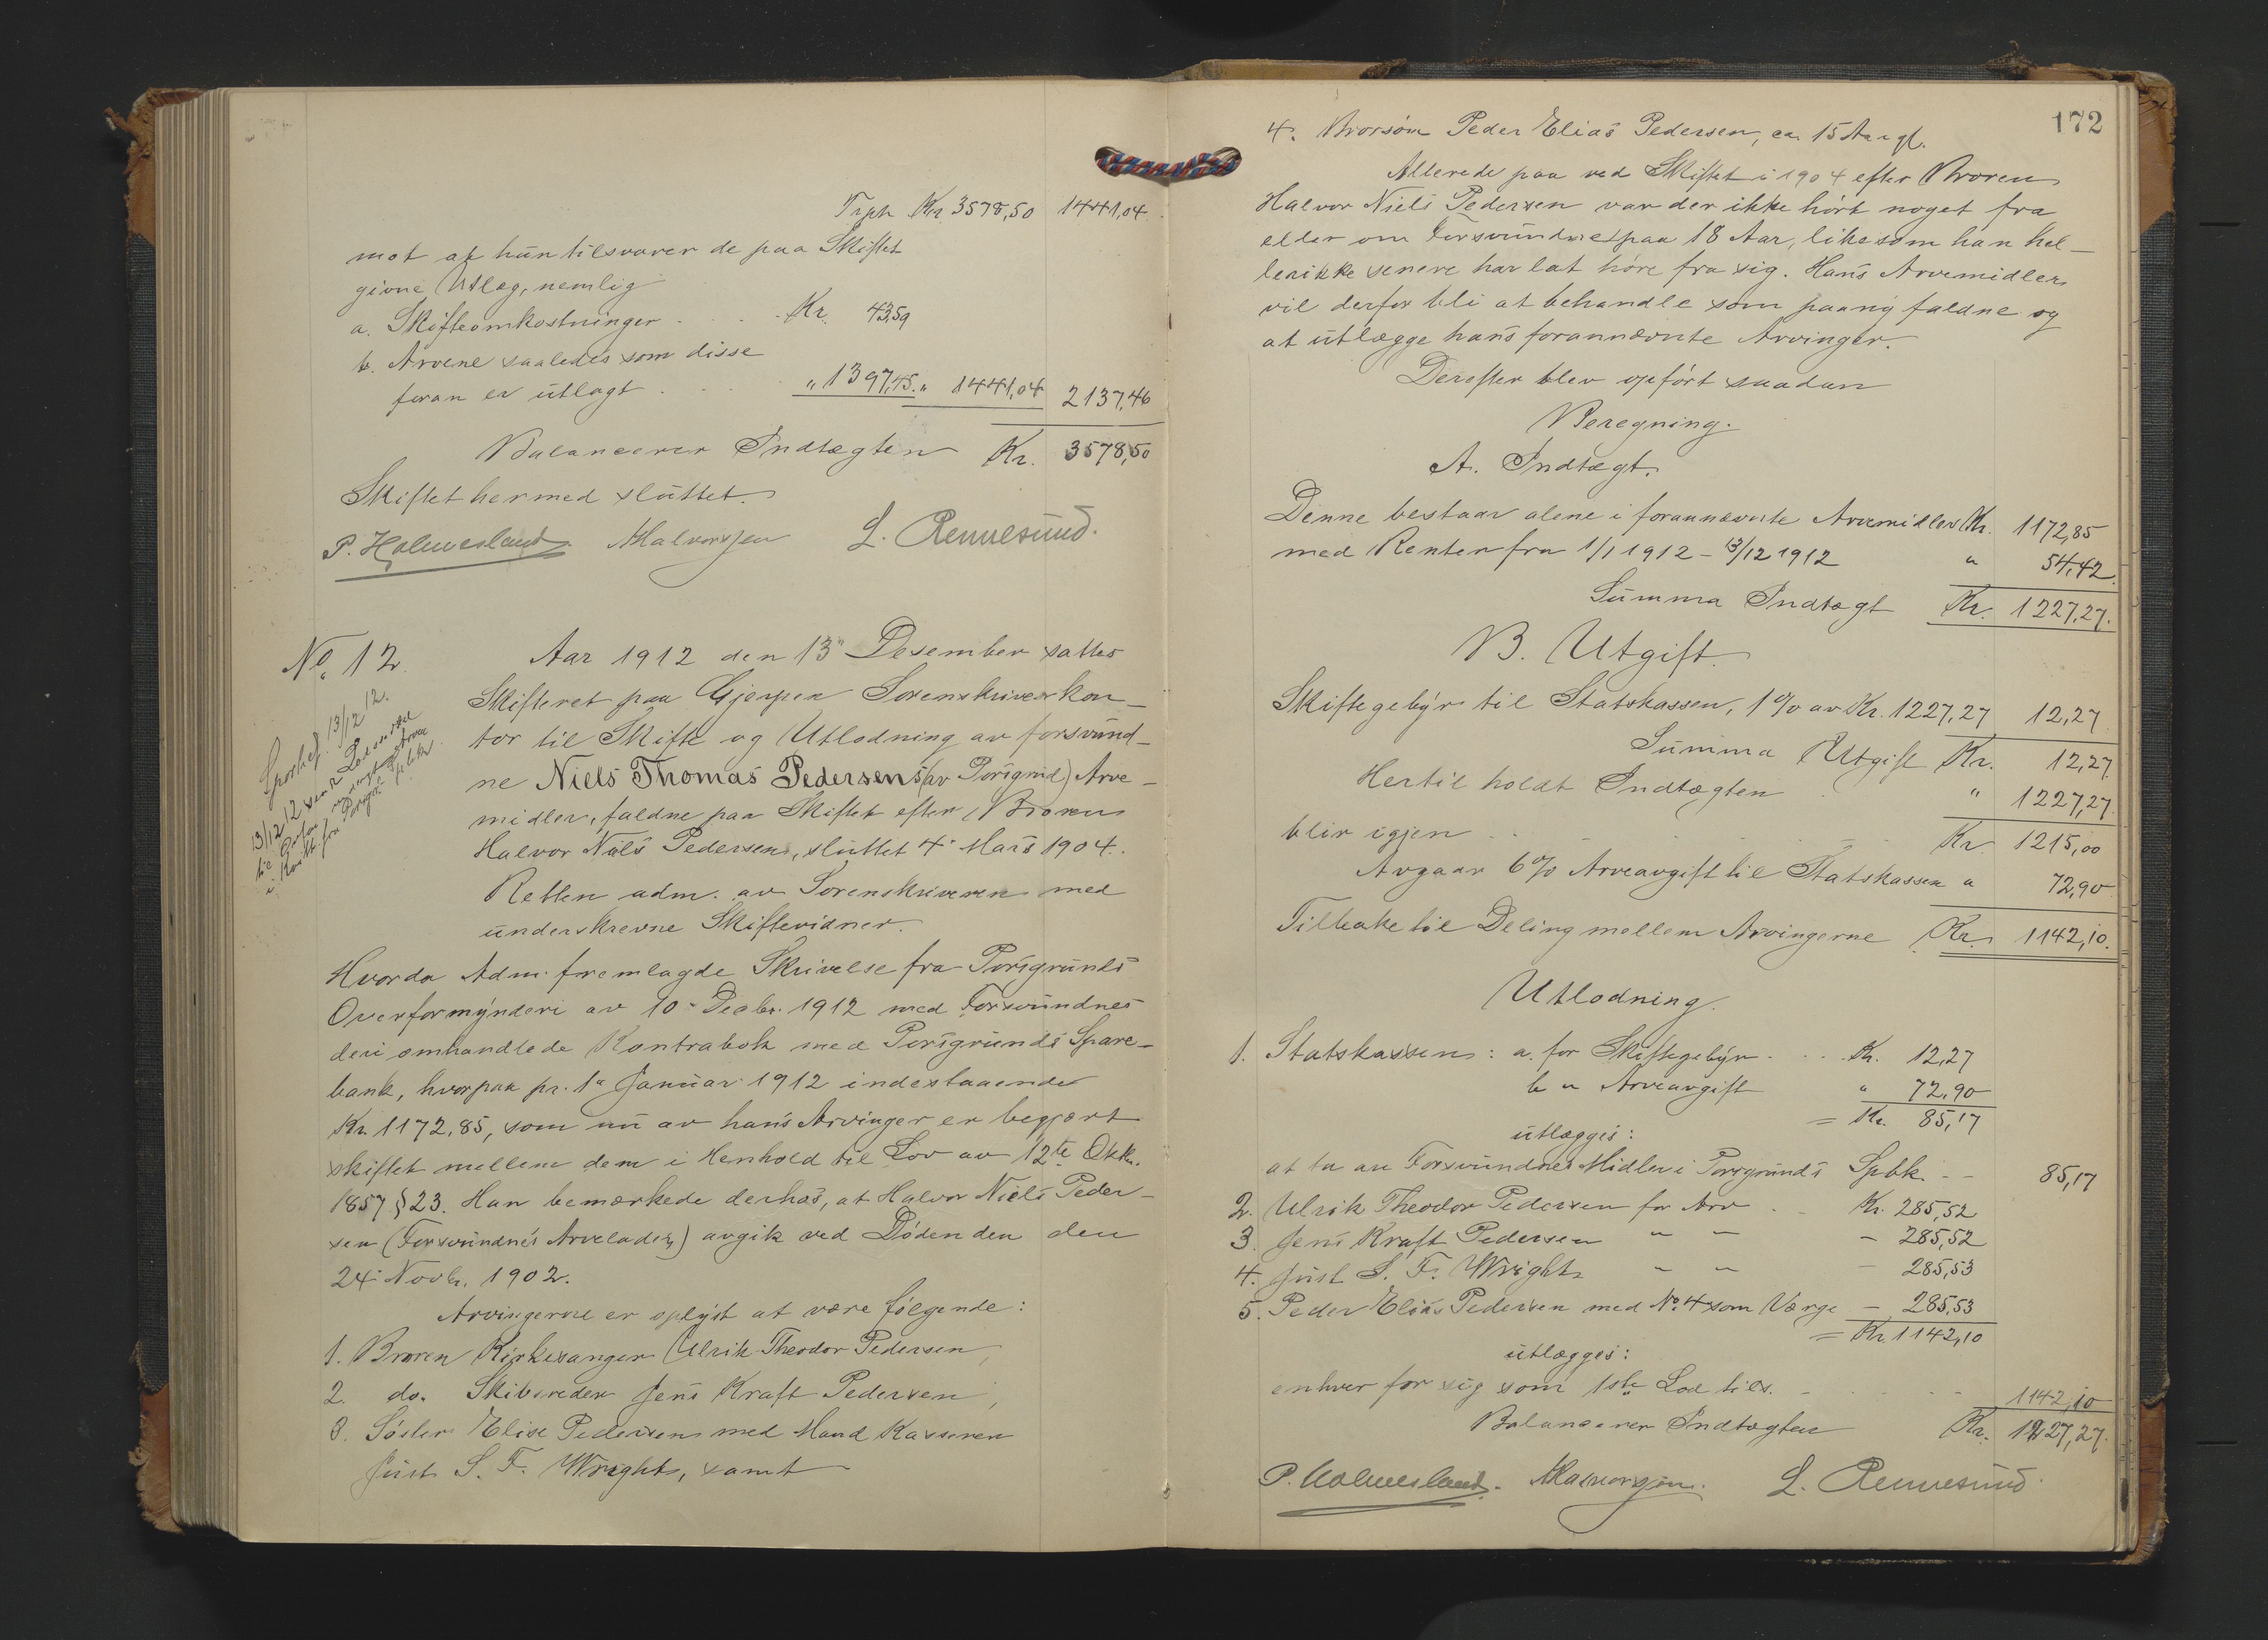 Trph Kr. 3578,50 1441,04
mot at hun tilsvarer de paa Skiftet
givne Utlæg, nemlig
a. Skifteomkostninger . . . Kr. 43,59
b. Arvene saaledes som disse
foran er utlagt . . . " 1397,45. " 1441,04 2137,46
Balancerer Indtægten Kr. 3578,50
Skiftet hermed sluttet.
P. Holmesland. Halvorsen L. Rennesund.
No. 12.
Sportlef. 13/12 12.
13/12 12
Aar 1912 den 13" Desember sattes
Skifteret paa Gjerpen Sorenskriverkon-
tor til Skifte og Utlodning av forsvund-
ne Niels Thomas Pedersens (av Porsgrund) Arve-
midler, faldne paa Skiftet efter Broren
Halvor Niels Pedersen, sluttet 4" Mars 1904.
Retten adm. av Sorenskriveren med
underskrevne Skiftevidner.
Hvorda Adm. fremlagde Skrivelse fra Porsgrunds
Overformynderi av 10" Decbr. 1912 med Forsvundnes
deri omhandlede Kontrabok med Porsgrunds Spare-
bank, hvorpaa pr. 1" Januar 1912 indestaaende
Kr. 1172,85, som nu av hans Arvinger er begjært
skiftet mellem dem i Henhold til Lov av 12te Oktr.
1857 § 23. Han bemærkede derhos, at Halvor Niels Peder-
sen (Forsvundnes Arvelader) avgik ved Døden den den
24" Novbr. 1902.
Arvingerne er oplyst at være følgende:
1. Broren Kirkesanger Ulrik Theodor Pedersen,
2. do. Skibsreder Jens Kraft Pedersen,
3. Søster Elise Pedersen med Mand Kasserer
Just S. F. Wright, samt
172
4. Brorsøn Peder Elias Pedersen, ca. 15 Aar gl.
Allerede paa ved Skiftet i 1904 efter Broren
Halvor Niels Pedersen var der ikke hørt noget fra
eller om Forsvundne paa 18 Aar, likesom han hel-
ler ikke senere har lat høre fra sig. Hans Arvemidler
vil derfor bli at behandle som paany faldne og
at utlægge hans forannævnte Arvinger.
Derefter blev opført saadan
Beregning.
A. Indtægt.
Denne bestaar alene i forannævnte Arvemidler Kr. 1172,85
med Renter fra 1/1 1912 - 13/12 1912 " 54,42.
Summa Indtægt Kr. 1227,27.
B. Utgift.
Skiftegebyr til Statskassen, 1% av Kr. 1227,27 12,27
Summa Utgift Kr. 12,27
Hertil holdt Indtægten . " 1227,27
blir igjen . . . Kr 1215,00
Avgaar 6% Arveavgift til Statskassen " 72,90
Tilbake til Deling mellem Arvingerne Kr. 1142,10.
Utlodning.
1. Statskassen: a. for Skiftegebyr . . . Kr. 12,27
b " Arveavgift " 72,90
= Kr. 85,17
utlægges:
at ta av Forsvundnes Midler i Porsgrunds Spbk. - - 85,17
2. Ulrik Theodor Pedersen for Arv . . Kr. 285,52
3. Jens Kraft Pedersen " " - 285,52
4. Just S. F. Wright " " - 285,53
5. Peder Elias Pedersen med No. 4 som Værge - 285,53
= Kr. 1142,10
utlægges:
enhver for sig som 1ste Lod tils. - - - 1142,10
Balancerer Indtægten Kr. 1227,27.
P. Holmesland. Halvorsen. L. Rennesund.